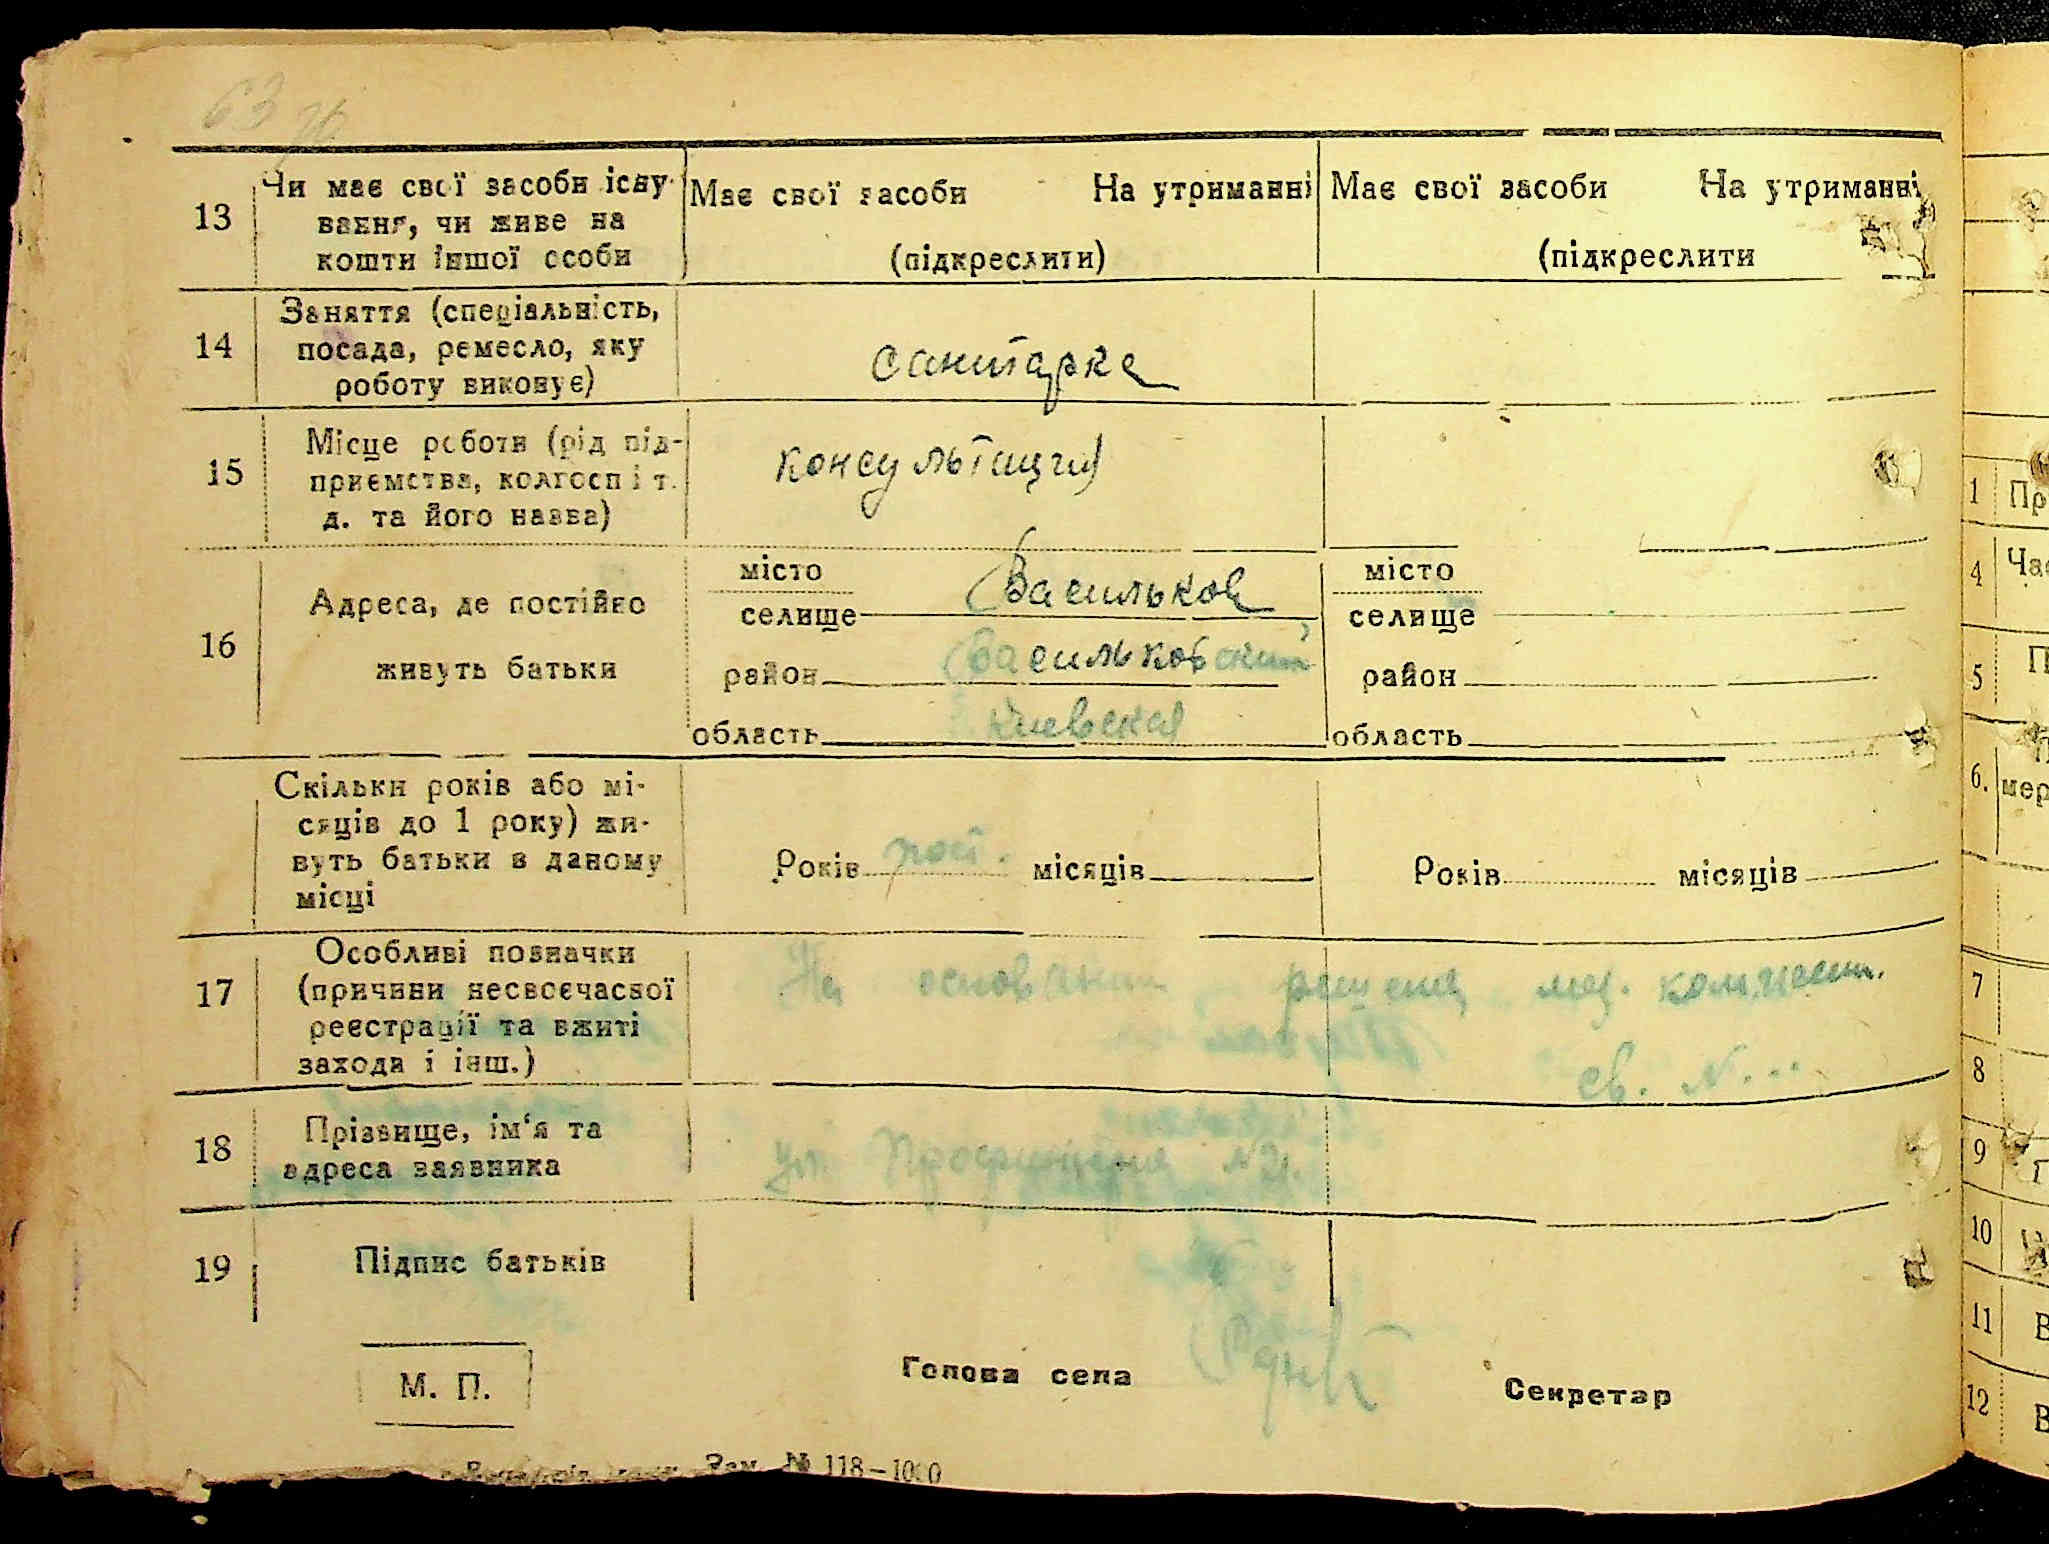 63
13 Чи має свої засоби існу- Має свої засоби На утриманні Має свої засоби На утриманні
вання, чи живе на
кошти іншої особи (підкреслити) (підкреслити
14 Заняття (спеціальність,
посада, ремесло, яку санитарка
роботу виконує)
15 Місце роботи (рід під- консультация
приємства, колгосп і т.
д. та його назва)
16 Адреса, де постійно
живуть батьки
місто місто
селище Васильков селище
район Васильковский район
область Киевская область
Скільки років або мі-
сяців до 1 року) жи-
вуть батьки в даному Років пост. місяців Років місяців
місці
17 Особливі позначки
(причини несвоєчасної На основании решения мед.
реєстрації та вжиті
заходи і інш.) св. N...
18 Прізвище, ім'я та
адреса заявника ул.
19 Підпис батьків
М. П. Голова села Секретар
Зам. № 118—1000
1 Пр
4 Час
5 П
6. П
мер
7
8
9 П
10
11 В
12 В